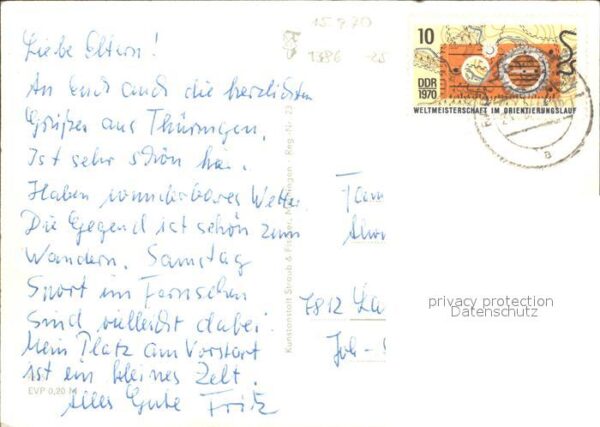 15.9.70
Liebe Eltern!
An Euch auch die herzlichsten
Grüße aus Thüringen.
Ist sehr schön hier.
Haben wunderbares Wetter.
Die Gegend ist schön zum
Wandern. Samstag
Sport im Fernsehen
sind vielleicht dabei.
Mein Platz am Vorstart
ist ein kleines Zelt.
Alles Gute Fritz
EVP 0,20 M
Kunstanstalt Straub & Fischer, Meiningen Reg.-Nr. 23
10
DDR
1970
WELTMEISTERSCHAFT IM ORIENTIERUNGSLAUF
Fam
7812
privacy protection
Datenschutz